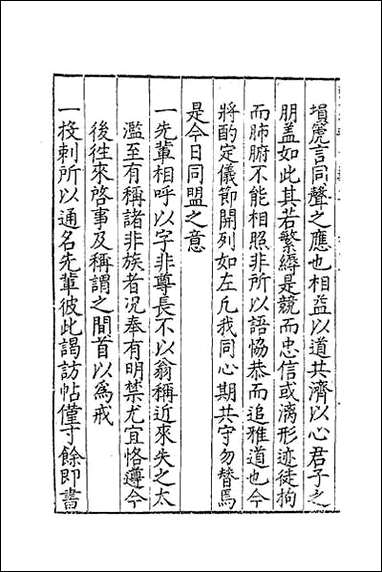 塤箎言同聲之應也相益以道共濟以心君子之
朋盖如此其若繁縟是競而忠信或漓形迹徒拘
而肺腑不能相照非所以語恊恭而追雅道也今
將酌定儀節開列如左凡我同心期共守勿替焉
是今日同盟之意
一先輩相呼以字非尊長不以翁稱近來失之太
濫至有稱諸非族者况奉有明禁尤宜恪遵今
後徃來啓事及稱謂之間首以爲戒
一投刺所以通名先輩彼此謁訪帖僅寸餘即書